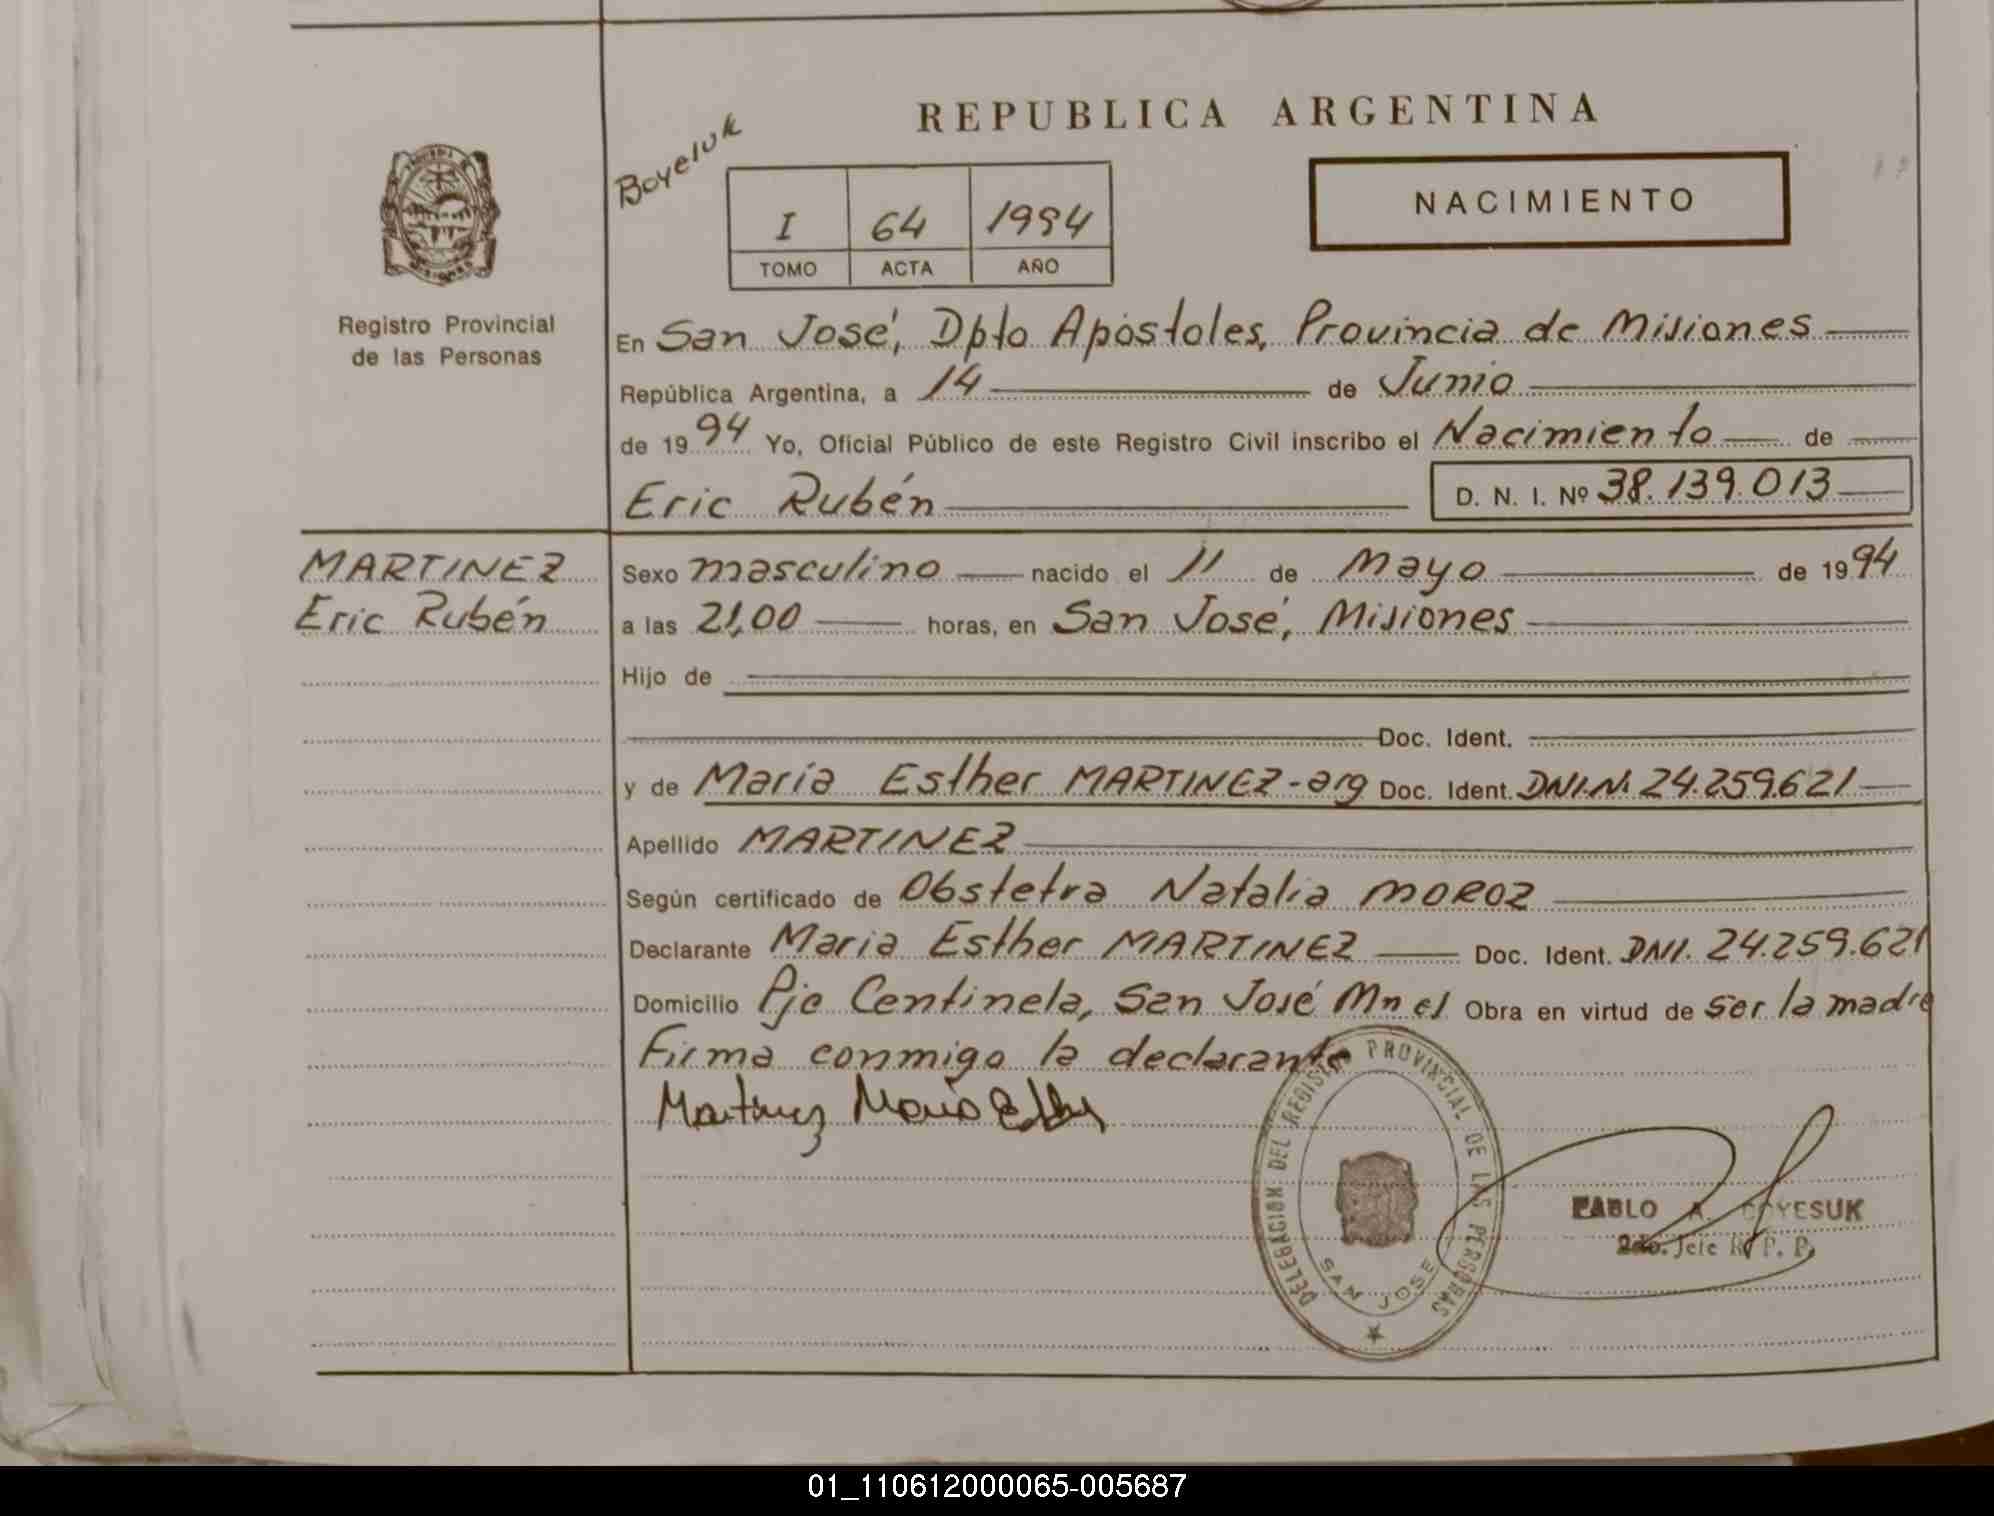 REPUBLICA ARGENTINA
I 64 1994
TOMO ACTA AÑO
NACIMIENTO
Registro Provincial
de las Personas
En San José, Dpto Apóstoles, Provincia de Misiones
República Argentina, a 14 de Junio
de 1994 Yo, Oficial Público de este Registro Civil inscribo el Nacimiento de
Eric Rubén D. N. I. Nº 38.139.013
MARTINEZ
Eric Rubén
Sexo masculino nacido el 11 de Mayo de 1994
a las 21,00 horas, en San José, Misiones
Hijo de
Doc. Ident.
y de María Esther MARTINEZ-arg Doc. Ident. DNI.Nº 24.259.621
Apellido MARTINEZ
Según certificado de Obstetra Natalia MOROZ
Declarante María Esther MARTINEZ Doc. Ident. DNI. 24.259.621
Domicilio Pje Centinela, San José Mnes Obra en virtud de ser la madre
Firma conmigo la declarante
Martinez Maria Esther
DELEGACION DEL REGISTRO PROVINCIAL DE LAS PERSONAS
SAN JOSE
PABLO A. BOYESUK
2do. Jefe R. P. P.
01_110612000065-005687